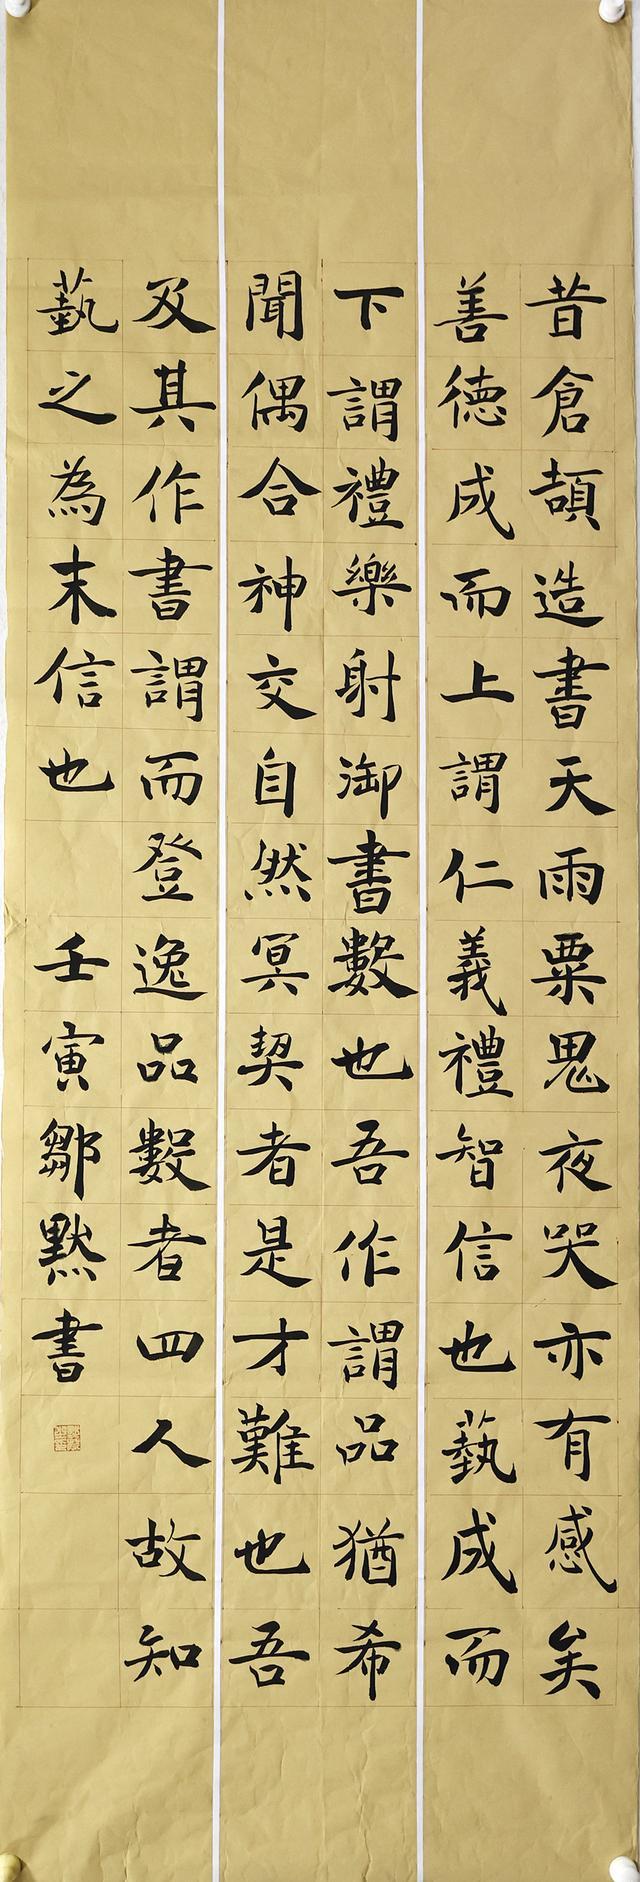 昔倉頡造書天雨粟鬼夜哭亦有感矣
善德成而上謂仁義禮智信也藝成而
下謂禮樂射御書數也吾作謂品猶希
聞偶合神交自然冥契者是才難也吾
及其作書謂而登逸品數者四人故知
藝之為末信也 壬寅鄒默書